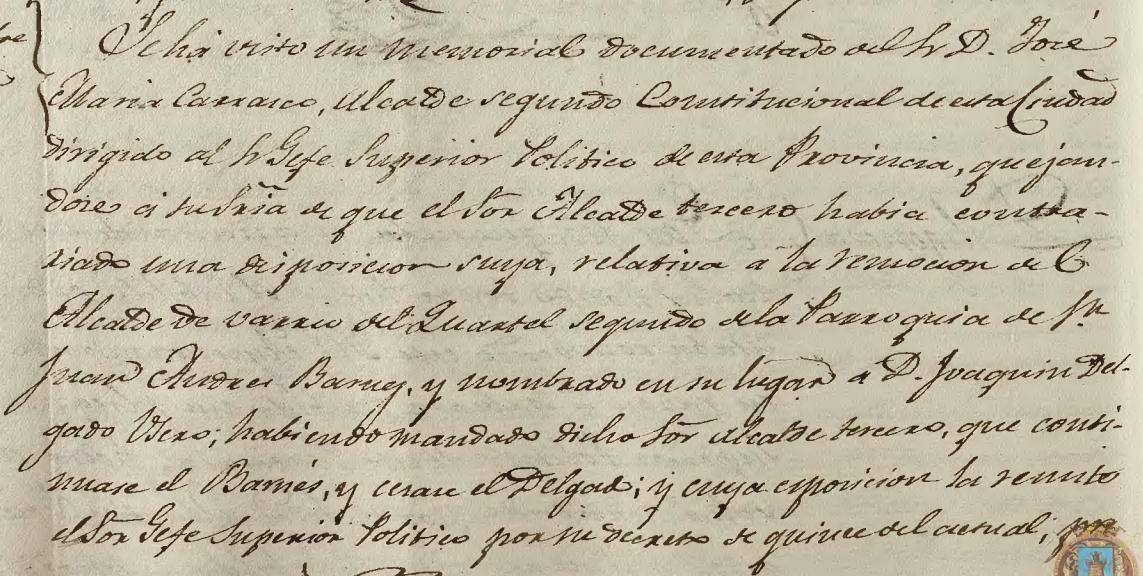 Se ha visto un memorial documentado del Sr D. José
Maria Carrasco, Alcalde segundo Constitucional de esta Ciudad
dirigido al Sr Gefe Superior Politico de esta Provincia, quejan-
dose á su Sria de que el Sor Alcalde tercero habia contra-
riado una disposicion suya, relativa á la remocion del
Alcalde de varrio del Quartel segundo dela Parroquia de Sn
Juan Andres Barnes, y nombrado en su lugar a D. Joaquin Del-
gado Usero; habiendo mandado dicho Sor Alcalde tercero, que conti-
nuase el Barnés, y cesase el Delgado; y cuya esposicion la remite
el Sor Gefe Superior Politico por su decreto de quince del actual,